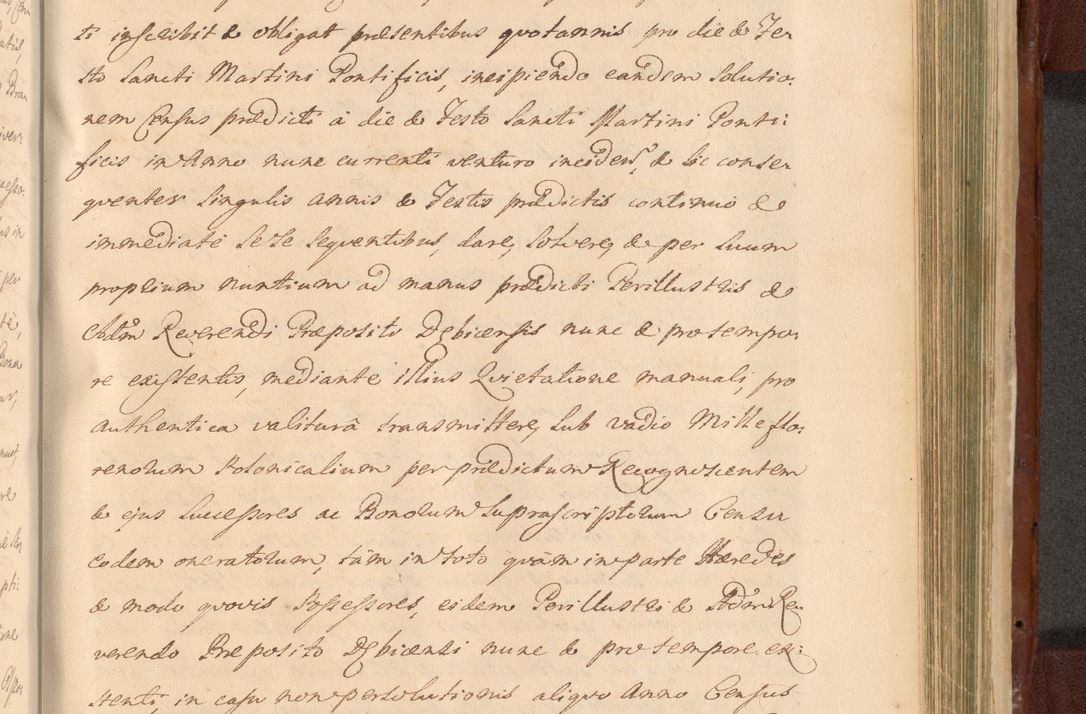 ti inscribit & obligat præsentibus quotannis pro die & Fe-
sto Sancti Martini Pontificis, incipiendo eandem Solutio-
nem Census prædicti à die & Festo Sancti Martini Ponti:
ficis in Anno nunc currenti venturo inciden, & sic conse-
quenter Singulis annis & Festis prædictis continuè &
immediatè Se Se Sequentibus, dare, Solvere, & per Suum
proprium nuntium ad manus prædicti Perillustris &
Adm Reverendi Præpositi Dębicensis nunc & pro tempo-
re existentis, mediante illius Quietatione manuali, pro
authentica valiturâ transmittere, Sub vadio Mille flo-
renorum Polonicalium per prædictum Recognoscentem
& ejus Successores ac Bonorum Suprascriptorum Censu
eodem oneratorum, tam in toto quàm in parte Hæredes
& modo quovis Possessores, eidem Perillustri & Adm Re-
verendo Præposito Dębicensi nunc & pro tempore exi:
stenti, in casu non persolutionis aliquo Anno Census